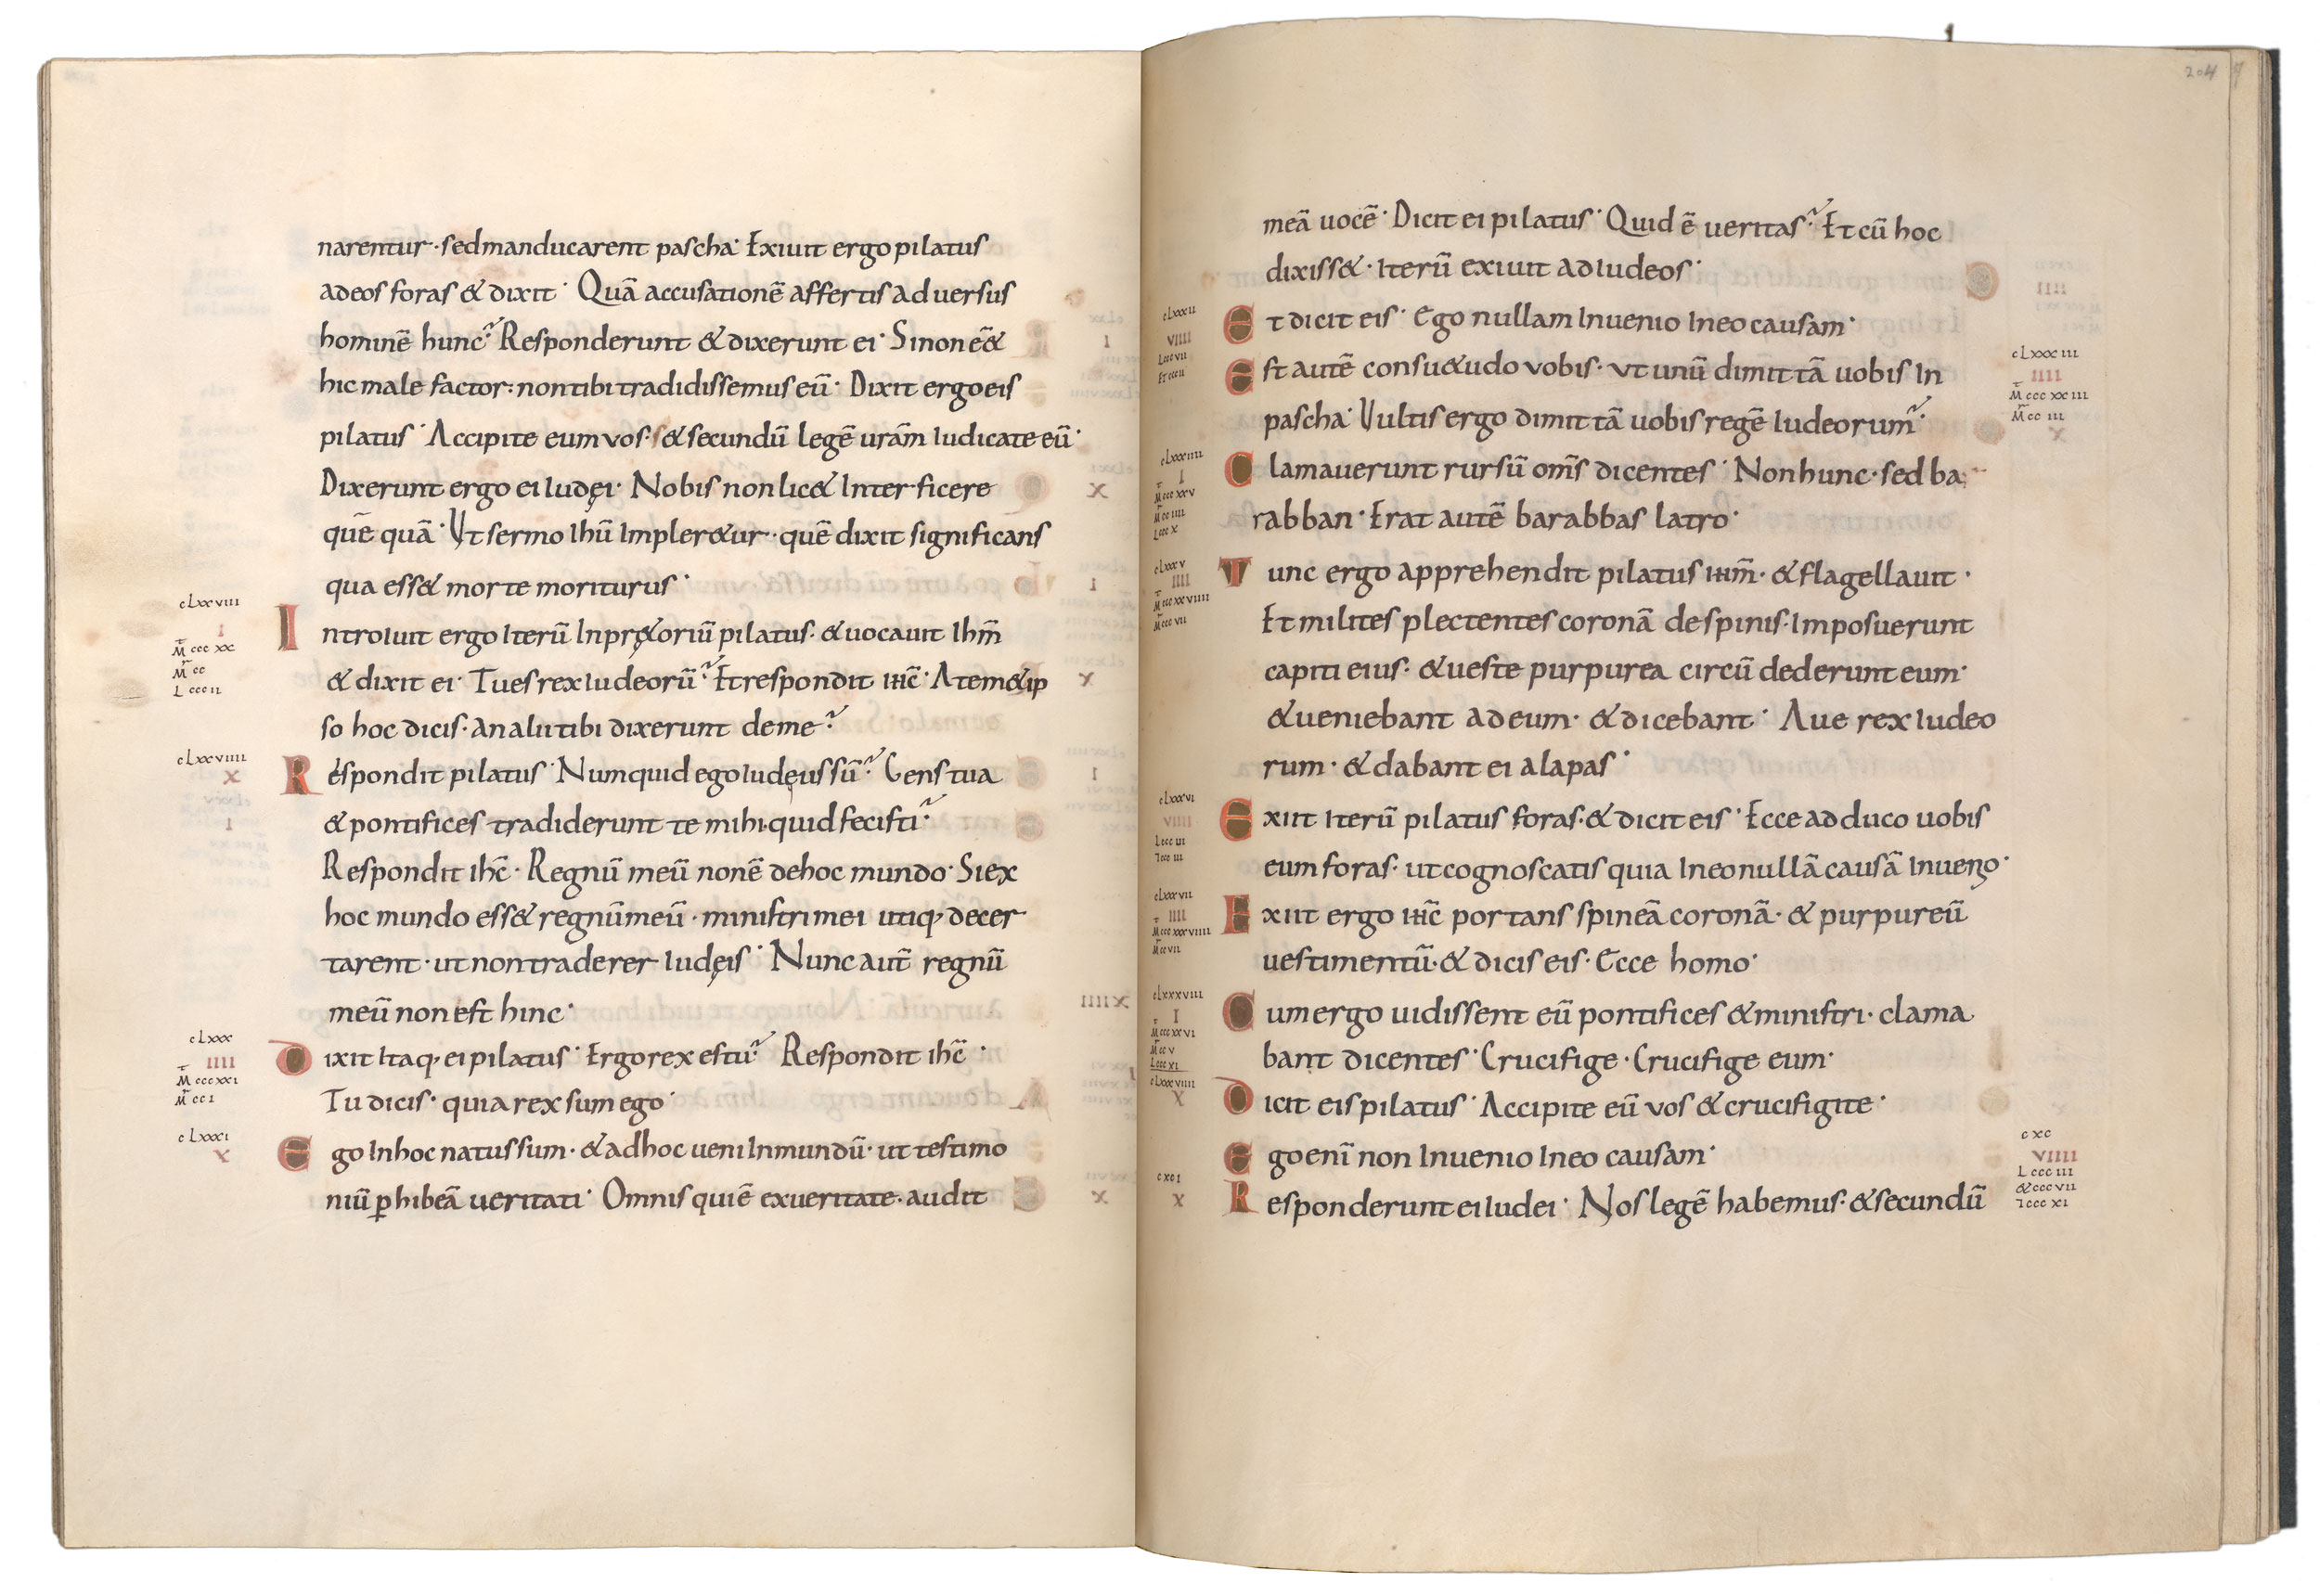 narentur· sed manducarent pascha· Exiuit ergo pilatus
ad eos foras & dixit· Quā accusationē affertis aduersus
hominē hunc? Responderunt & dixerunt ei· Si non eēt
hic male factor: non tibi tradidissemus eū· Dixit ergo eis
pilatus· Accipite eum vos· & secundū legē urām Iudicate eū·
Dixerunt ergo ei Iudęi· Nobis non lic& Interficere
quē quā· Ut sermo Ihū Impler&ur· quē dixit significans
qua ess& morte moriturus·
cLxxviii
i
M ccc xx
M cc
L ccc ii
Introiuit ergo Iterū In pr&oriū pilatus· & uocauit Ihm̄
& dixit ei· Tu es rex Iudeorū? Et respondit ihc̄· A tem&ip
so hoc dicis· an alii tibi dixerunt de me?
cLxxviiii
x
Respondit pilatus· Numquid ego Iudęus sū? Gens tua
& pontifices tradiderunt te mihi· quid fecisti?
Respondit ihc̄· Regnū meū non ē de hoc mundo· Si ex
hoc mundo ess& regnū meū· ministri mei utiq; decer
tarent· ut non traderer Iudęis· Nunc aut̄ regnū
meū non est hinc·
cLxxx
iiii
M ccc xxi
M cc i
Dixit Itaq; ei pilatus· Ergo rex es tu? Respondit ihc̄·
Tu dicis· quia rex sum ego·
cLxxxi
x
Ego In hoc natus sum· & ad hoc ueni In mundū· ut testimo
niū phibeā ueritati· Omnis qui ē ex ueritate· audit
204
meā uocē· Dicit ei pilatus· Quid ē ueritas? Et cū hoc
dixiss&· Iterū exiuit ad Iudeos·
cLxxxii
viiii
L ccc vii
Et dicit eis· Ego nullam Inuenio In eo causam·
cLxxxiii
iiii
M ccc xx iii
M cc iii
Est autē consu&udo vobis· vt unū dimittā uobis In
pascha· Vultis ergo dimittā uobis regē Iudeorum?
cLxxxiiii
i
M ccc xxv
M cc iiii
L ccc x
Clamauerunt rursū om̄s dicentes· Non hunc· sed ba
rabban· Erat autē barabbas latro·
cLxxxv
iiii
M ccc xxviiii
M ccc vii
Tunc ergo apprehendit pilatus ihm̄· & flagellauit·
Et milites plectentes coronā de spinis· Imposuerunt
capiti eius· & ueste purpurea circū dederunt eum·
& ueniebant ad eum· & dicebant· Aue rex Iudeo
rum· & dabant ei alapas·
cLxxxvi
viiii
L ccc iii
Exiit Iterū pilatus foras· & dicit eis· Ecce adduco uobis
eum foras· ut cognoscatis quia In eo nullā causā Inuenio·
cLxxxvii
iiii
M ccc xxxviiii
M cc vii
Exiit ergo ihc̄ portans spineā coronā· & purpureū
uestimentū· & dicis eis· Ecce homo·
cLxxxviii
i
M ccc xxvi
M cc v
L ccc xi
Cum ergo uidissent eū pontifices & ministri· clama
bant dicentes· Crucifige· Crucifige eum·
cLxxxviiii
x
Dicit eis pilatus· Accipite eū vos & crucifigite·
cxc
viiii
L ccc iii
& ccc vii
7 ccc xi
Ego enī non Inuenio In eo causam·
cxci
x
Responderunt ei Iudei· Nos legē habemus· & secundū